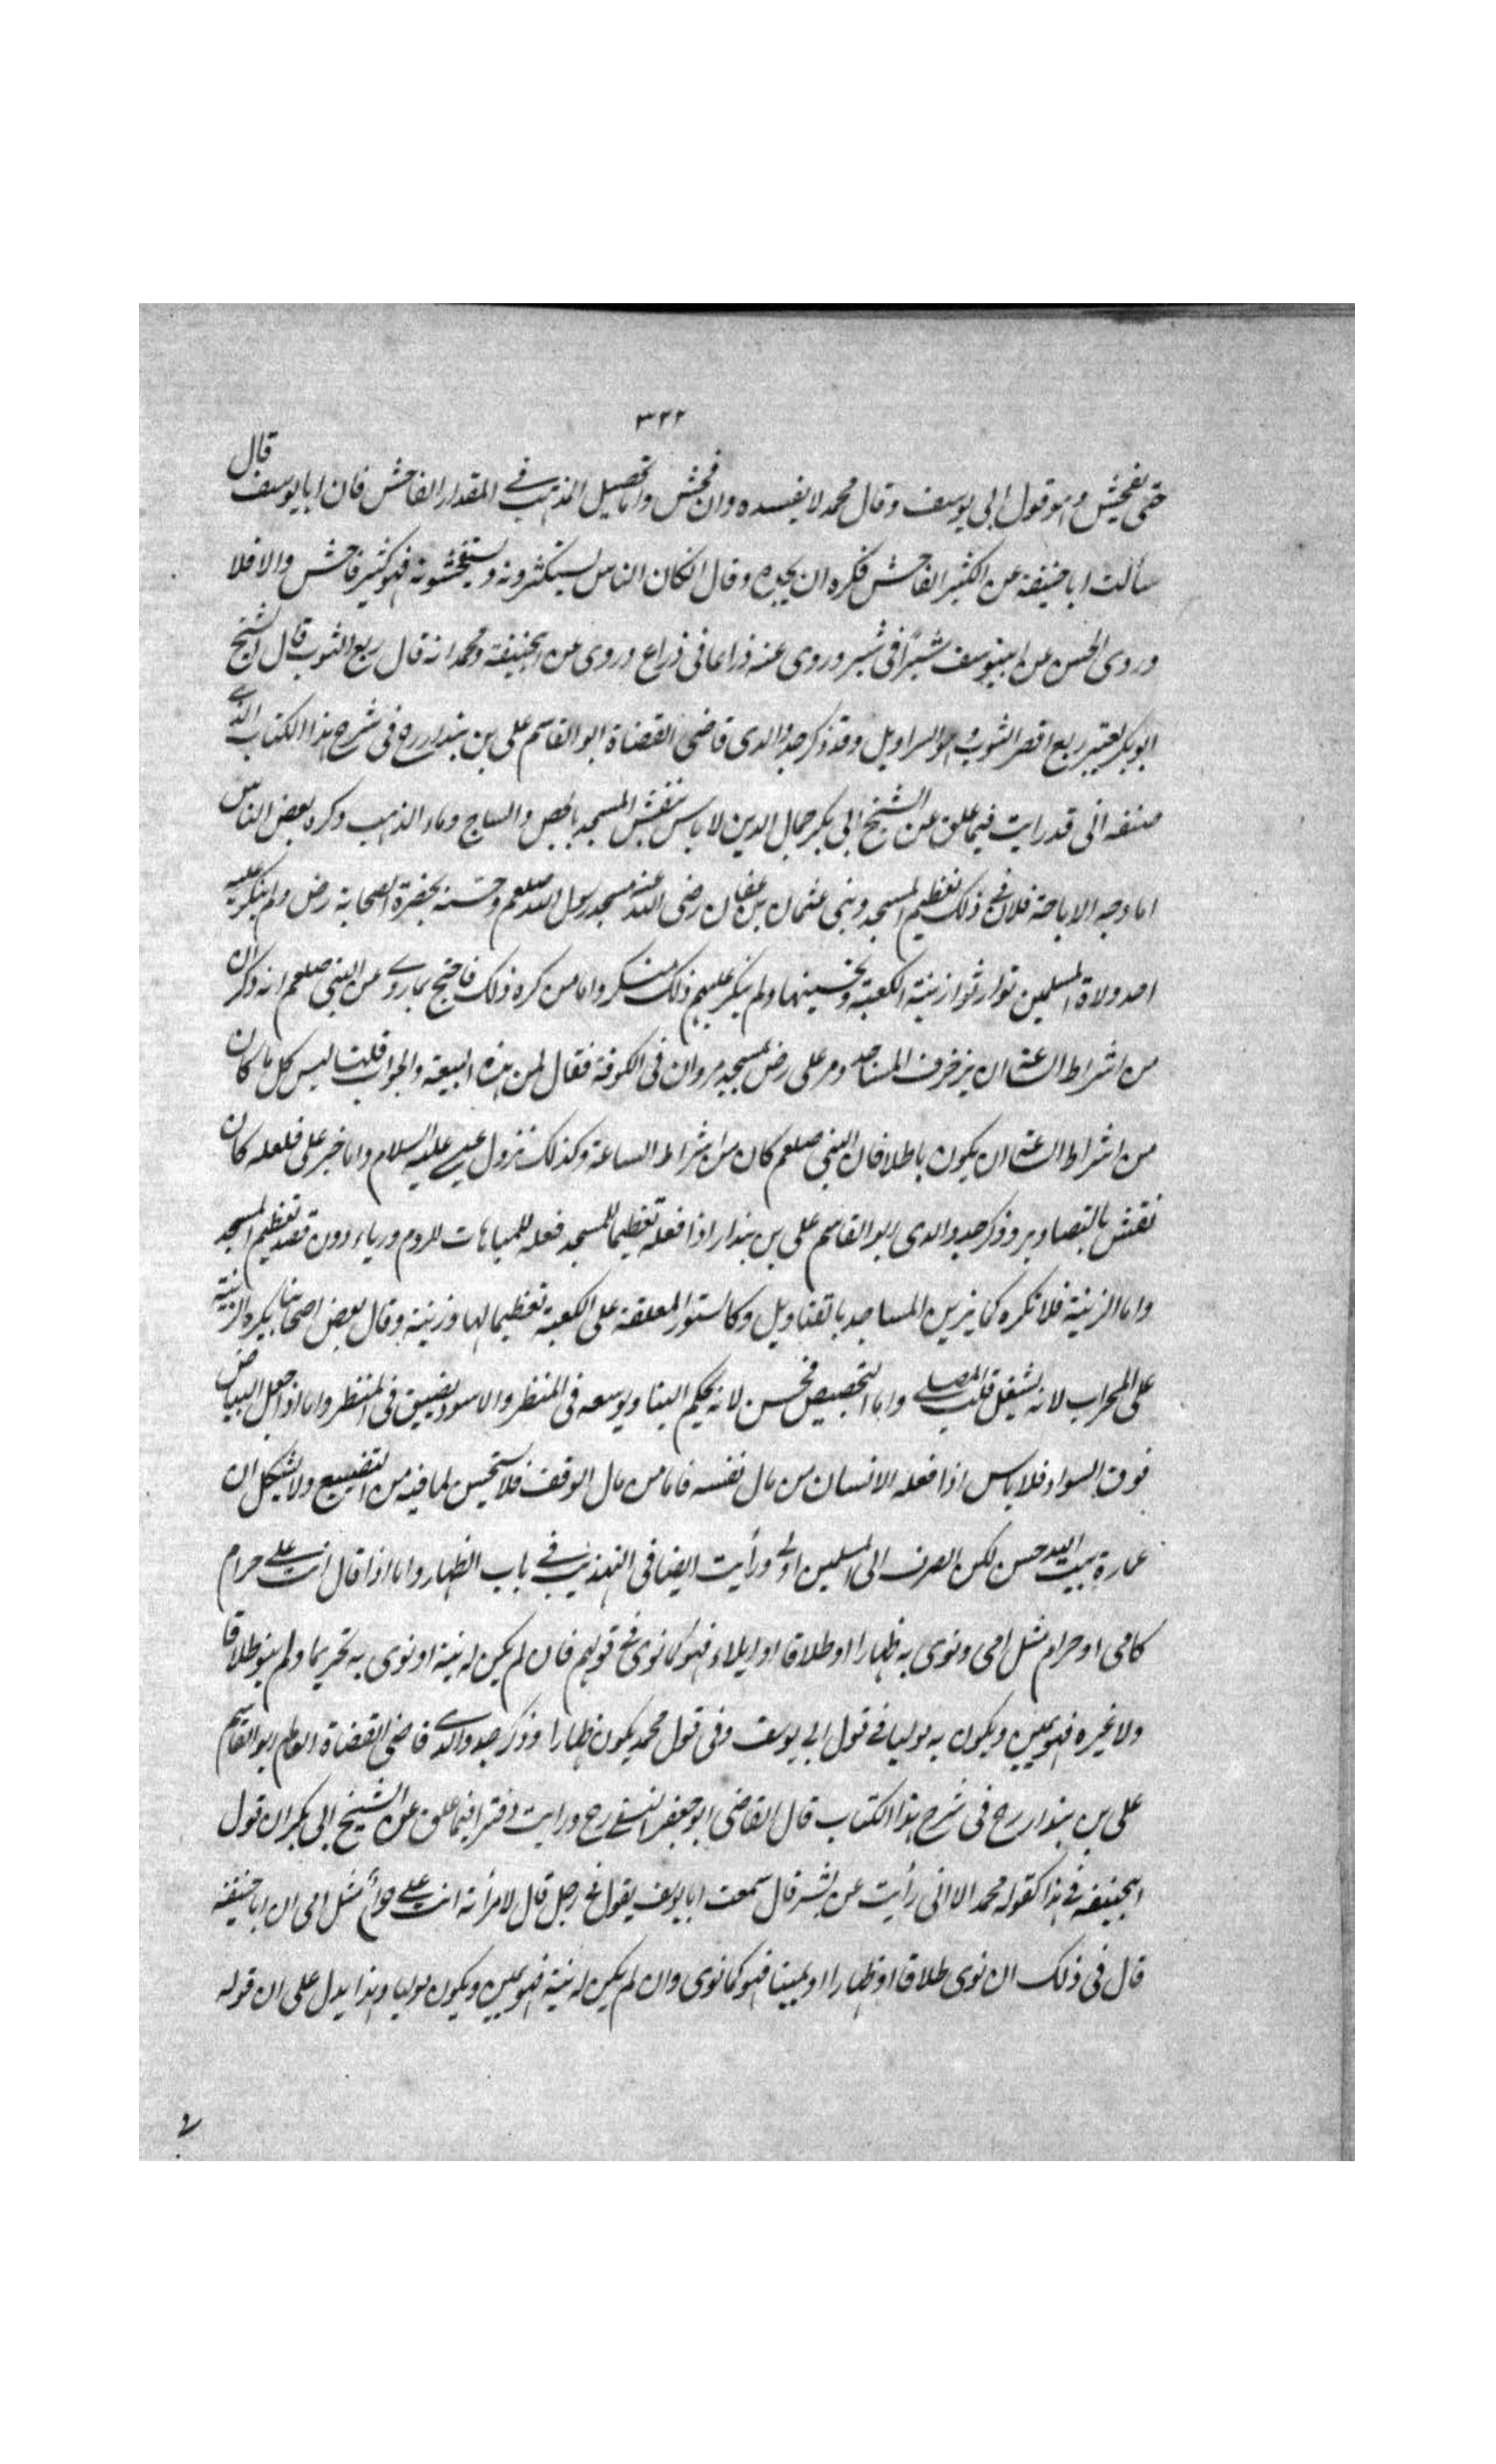 ٣٢٢
حتى يفحش وهو قول ابى يوسف وقال محمد لا يفسده وان فحش واما تحصيل المذهب فى المقدار الفاحش فان ابا يوسف قال
سألت ابا حنيفة عن الكثير الفاحش فكره ان يحده وقال انكان الناس يستكثرونه ويستفحشونه فهو كثير فاحش والا فلا
وروى الحسن عن ابيوسف شبرا فى شبر وروى عنه ذراعا فى ذراع وروى عن ابيحنيفة ومحمد انه قال ربع الثوب قال الشيخ
ابو بكر يعتبر ربع اقصر الثوب وهو السراويل وقد ذكر جد والدى قاضى القضاة ابو القاسم على بن بندار رح فى شرح هذا الكتاب الذى
صنفه انى قد رايت فيما علق عن الشيخ ابى بكر جمال الدين لا باس بنقش المسجد بالجص والساج وماء الذهب وكره بعض الناس
اما وجه الاباحة فلان فى ذلك تعظيم المسجد وبنى عثمان بن عفان رضى الله عنه مسجد رسول الله صلعم وحسنه بحضرة الصحابة رض ولم ينكر عليه
احد ولاة المسلمين توارثوا زينة الكعبة وتحسينها ولم ينكر عليهم ذلك منكر واما من كره ذلك فاحتج بما روى عن النبى صلعم انه ذكر ان
من اشراط الساعة ان يزخرف المساجد ومر على رض بمسجد مروان فى الكوفة فقال لمن هذه البيعة والجواب قلنا ليس كل ما كان
من اشراط الساعة ان يكون باطلا فان النبى صلعم كان من اشراط الساعة وكذلك نزول عيسى عليه السلام واما خبر على فلعله كان
نقش بالتصاوير وذكر جد والدى ابو القاسم على بن بندار اذا فعله تعظيما للمسجد فعله للمباهات للروم ورياء دون قصد تعظيم المسجد
واما الزينة فلا تكره كما يزين المساجد بالقناديل وكالستور المعلقة على الكعبة تعظيما لها وزينة وقال بعض اصحابنا يكره الزينة
على المحراب لانه يشغل قلب المصلى واما التجصيص فحسن لانه يحكم البنا ويوسعه فى المنظر والاسود يضيق فى المنظر واما اذا جعل البياض
فوق السواد فلا باس اذا فعله الانسان من مال نفسه فاما من مال الوقف فلا يستحسن لما فيه من التضييع ولا يشكل ان
عمارة بيت الله حسن لكن الصرف الى المسلمين اولى ورأيت ايضا فى التهذيب فى باب الظهار واما اذا قال انت على حرام
كامى او حرام مثل امى ونوى به ظهارا او طلاقا او ايلاء فهو كما نوى فى قولهم فان لم يكن له نية او نوى به تحريما ولم ينو طلاقا
ولا غيره فهو يمين ويكون به موليا فى قول ابى يوسف وفى قول محمد يكون ظهارا وذكر جد والدى قاضى القضاة العالم ابو القاسم
على بن بندار رح فى شرح هذا الكتاب قال القاضى ابو جعفر النسفى رح ورايت دفترا فيما علق عن الشيخ ابى بكر ان قول
ابيحنيفة فى هذا كقول محمد الا انى رأيت عن بشر قال سمعت ابا يوسف يقول فى رجل قال لامرأته انت على حرام مثل امى ان ابا حنيفة
قال فى ذلك ان نوى طلاقا او ظهارا او يمينا فهو كما نوى وان لم يكن له نية فهو يمين ويكون موليا وهذا يدل على ان قوله